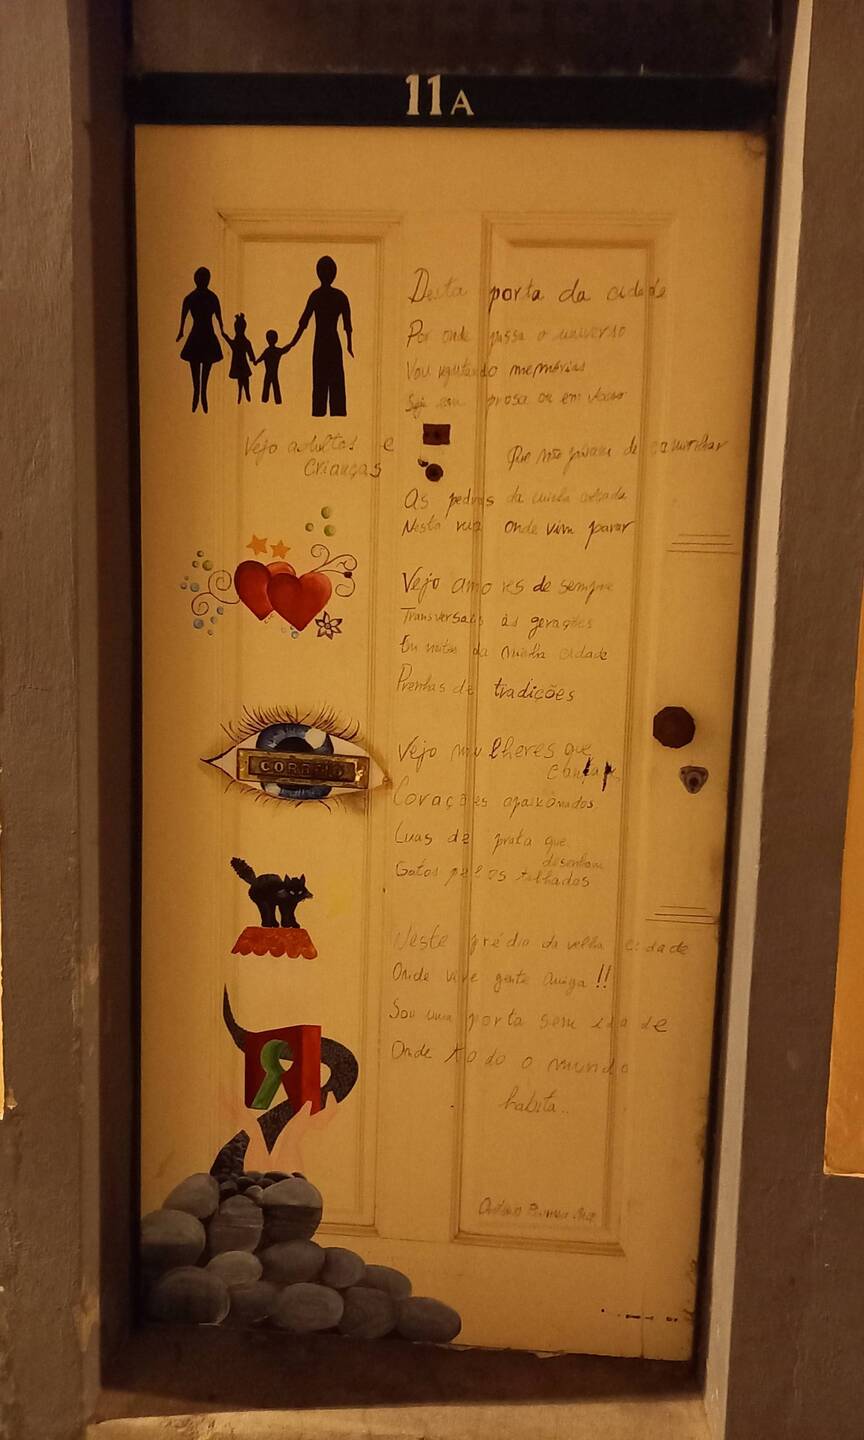 11A
Desta porta da cidade
Por onde passa o universo
Vou registando memórias
Seja em prosa ou em verso
Vejo adultos e
crianças
Que não param de caminhar
As pedras da minha calçada
Nesta rua onde vim parar
Vejo amores de sempre
Transversais às gerações
Em noites da minha cidade
Prenhas de tradições
Vejo mulheres que
cantam
CORREIO
Corações apaixonados
Luas de prata que
desenham
Gatos pelos telhados
Neste prédio da velha cidade
Onde vive gente amiga!!
Sou uma porta sem idade
Onde todo o mundo
habita..